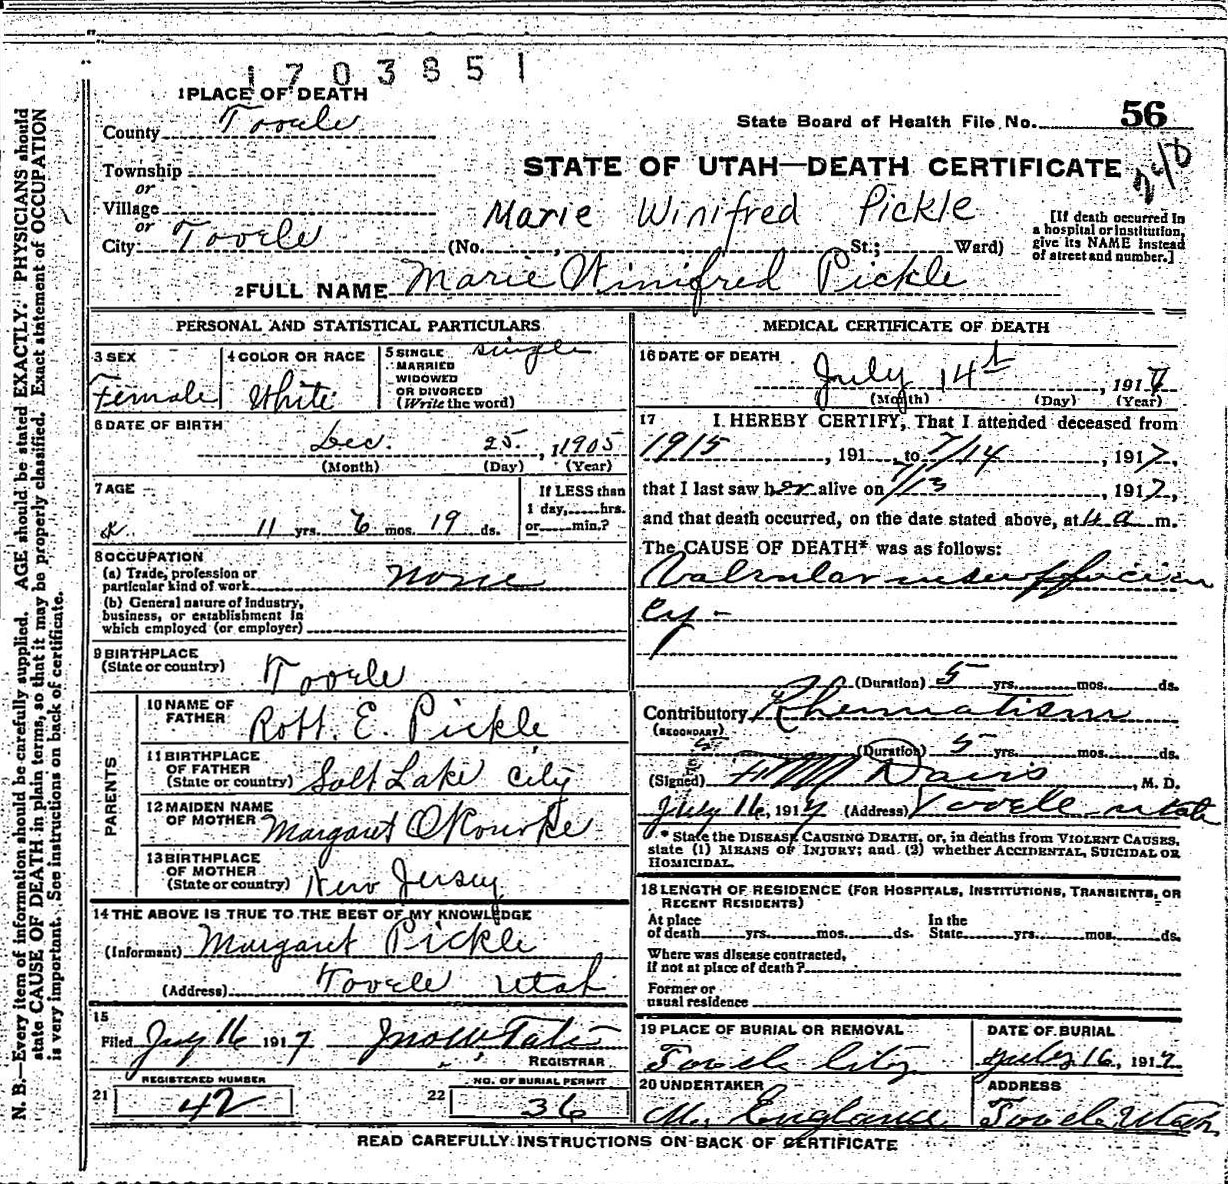 1703851
1 PLACE OF DEATH
County Tooele
State Board of Health File No. 56
Township
or
Village
or
City Tooele
STATE OF UTAH—DEATH CERTIFICATE
Marie Winifred Pickle
(No. , St.; Ward)
[If death occurred in
a hospital or institution,
give its NAME instead
of street and number.]
2 FULL NAME Marie Winifred Pickle
PERSONAL AND STATISTICAL PARTICULARS
3 SEX
Female
4 COLOR OR RACE
White
5 SINGLE single
MARRIED
WIDOWED
OR DIVORCED
(Write the word)
6 DATE OF BIRTH
Dec. 25, 1905
(Month) (Day) (Year)
7 AGE
11 yrs. 6 mos. 19 ds.
If LESS than
1 day, hrs.
or min.?
8 OCCUPATION
(a) Trade, profession or
particular kind of work none
(b) General nature of industry,
business, or establishment in
which employed (or employer)
9 BIRTHPLACE
(State or country) Tooele
PARENTS
10 NAME OF
FATHER Robt. E. Pickle
11 BIRTHPLACE
OF FATHER
(State or country) Salt Lake City
12 MAIDEN NAME
OF MOTHER Margaret O'Rourke
13 BIRTHPLACE
OF MOTHER
(State or country) New Jersey
14 THE ABOVE IS TRUE TO THE BEST OF MY KNOWLEDGE
(Informant) Margaret Pickle
(Address) Tooele Utah
15
Filed July 16 1917 Jno W Tate
REGISTRAR
REGISTERED NUMBER
21 42
NO. OF BURIAL PERMIT
22 36
MEDICAL CERTIFICATE OF DEATH
16 DATE OF DEATH
July 14th, 1917
(Month) (Day) (Year)
17 I HEREBY CERTIFY, That I attended deceased from
1915, 191 , to 7/14, 1917,
that I last saw her alive on 7/13, 1917,
and that death occurred, on the date stated above, at 4 a m.
The CAUSE OF DEATH* was as follows:
Valvular insufficien
cy -
(Duration) 5 yrs. mos. ds.
Contributory Rheumatism
(SECONDARY)
(Duration) 5 yrs. mos. ds.
(Signed) Davis, M. D.
July 16, 1917 (Address) Tooele Utah
* State the DISEASE CAUSING DEATH, or, in deaths from VIOLENT CAUSES,
state (1) MEANS OF INJURY; and (2) whether ACCIDENTAL, SUICIDAL OR
HOMICIDAL.
18 LENGTH OF RESIDENCE (FOR HOSPITALS, INSTITUTIONS, TRANSIENTS, OR
RECENT RESIDENTS)
At place
of death yrs. mos. ds.
In the
State yrs. mos. ds.
Where was disease contracted,
if not at place of death?
Former or
usual residence
19 PLACE OF BURIAL OR REMOVAL
Tooele City
DATE OF BURIAL
July 16, 1917.
20 UNDERTAKER
M. England
ADDRESS
Tooele, Utah.
READ CAREFULLY INSTRUCTIONS ON BACK OF CERTIFICATE
N. B.—Every item of information should be carefully supplied. AGE should be stated EXACTLY. PHYSICIANS should
state CAUSE OF DEATH in plain terms, so that it may be properly classified. Exact statement of OCCUPATION
is very important. See instructions on back of certificate.